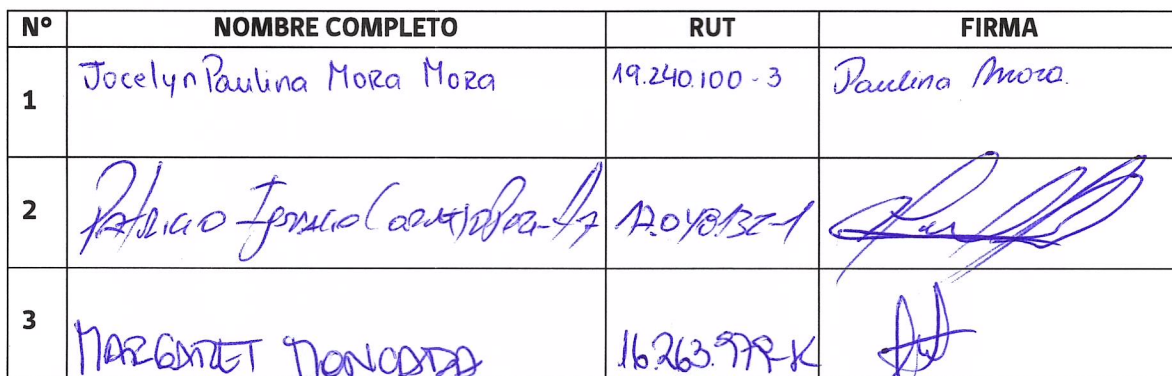 Nº NOMBRE COMPLETO RUT FIRMA
1 Jocelyn Paulina Mora Mora 19.240.100-3 Paulina Mora.
2 Patricio Ignacio
3 MARGARET MONCADA 16.263.979-K